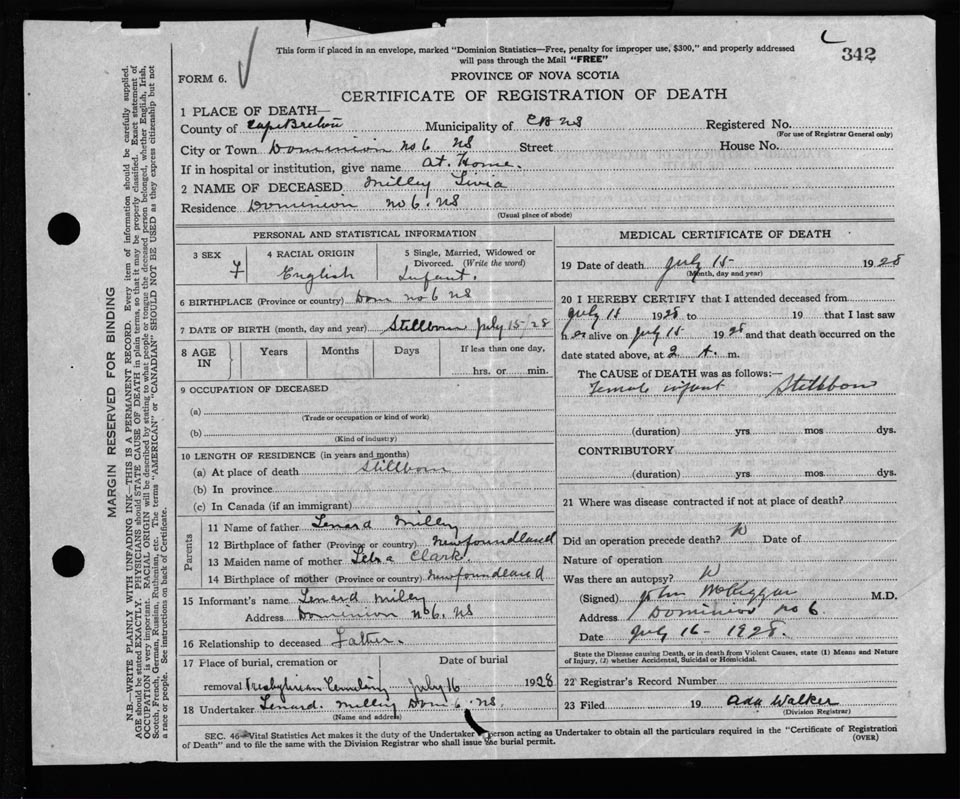 342
This form if placed in an envelope, marked "Dominion Statistics—Free, penalty for improper use, $300," and properly addressed
will pass through the Mail "FREE"
FORM 6.
PROVINCE OF NOVA SCOTIA
CERTIFICATE OF REGISTRATION OF DEATH
1 PLACE OF DEATH—
County of Cape Breton Municipality of CB NS Registered No.
(For use of Registrar General only)
City or Town Dominion No 6 NS Street House No.
If in hospital or institution, give name At Home.
2 NAME OF DECEASED Milley Livia
Residence Dominion No 6. NS
(Usual place of abode)
PERSONAL AND STATISTICAL INFORMATION
3 SEX 4 RACIAL ORIGIN 5 Single, Married, Widowed or
Divorced. (Write the word)
F English Infant.
6 BIRTHPLACE (Province or country) Dom No 6 NS
7 DATE OF BIRTH (month, day and year) Stillborn July 15/28
8 AGE IN Years Months Days If less than one day,
hrs. or min.
9 OCCUPATION OF DECEASED
(a)
(Trade or occupation or kind of work)
(b)
(Kind of industry)
10 LENGTH OF RESIDENCE (in years and months)
(a) At place of death Stillborn
(b) In province
(c) In Canada (if an immigrant)
Parents
11 Name of father Lenard Milley
12 Birthplace of father (Province or country) Newfoundland
13 Maiden name of mother Clark.
14 Birthplace of mother (Province or country) Newfoundland
15 Informant's name Lenard Miley
Address Dominion No 6. NS
16 Relationship to deceased Father.
17 Place of burial, cremation or Date of burial
removal Presbyterian Cemetery July 16 1928
18 Undertaker Lenard. Milley Dom 6. NS.
(Name and address)
MEDICAL CERTIFICATE OF DEATH
19 Date of death July 15 1928
(Month, day and year)
20 I HEREBY CERTIFY that I attended deceased from
July 15 1928 to 19 that I last saw
h er alive on July 15 1928 and that death occurred on the
date stated above, at 2 A. m.
The CAUSE of DEATH was as follows:—
Female infant Stillborn
(duration) yrs. mos dys.
CONTRIBUTORY
(duration) yrs. mos dys.
21 Where was disease contracted if not at place of death?
Did an operation precede death? N Date of
Nature of operation
Was there an autopsy? N
(Signed) John M.D.
Address Dominion No 6.
Date July 16 - 1928.
State the Disease causing Death, or in death from Violent Causes, state (1) Means and Nature
of Injury, (2) whether Accidental, Suicidal or Homicidal.
22 Registrar's Record Number
23 Filed 19 Ada Walker
(Division Registrar)
SEC. 46—Vital Statistics Act makes it the duty of the Undertaker person acting as Undertaker to obtain all the particulars required in the "Certificate of Registration
of Death" and to file the same with the Division Registrar who shall issue the burial permit. (OVER)
MARGIN RESERVED FOR BINDING
N.B.—WRITE PLAINLY WITH UNFADING INK—THIS IS A PERMANENT RECORD. Every item of information should be carefully supplied.
AGE should be stated EXACTLY. PHYSICIANS should STATE CAUSE OF DEATH in plain terms, so that it may be properly classified. Exact statement of
OCCUPATION is very important. RACIAL ORIGIN will be described by stating to what people or tongue the deceased person belonged, whether English, Irish,
Scotch, French, German, Russian, Ruthenian, etc. The terms "AMERICAN" or "CANADIAN" SHOULD NOT BE USED as they express citizenship but not
a race or people. See instructions on back of Certificate.